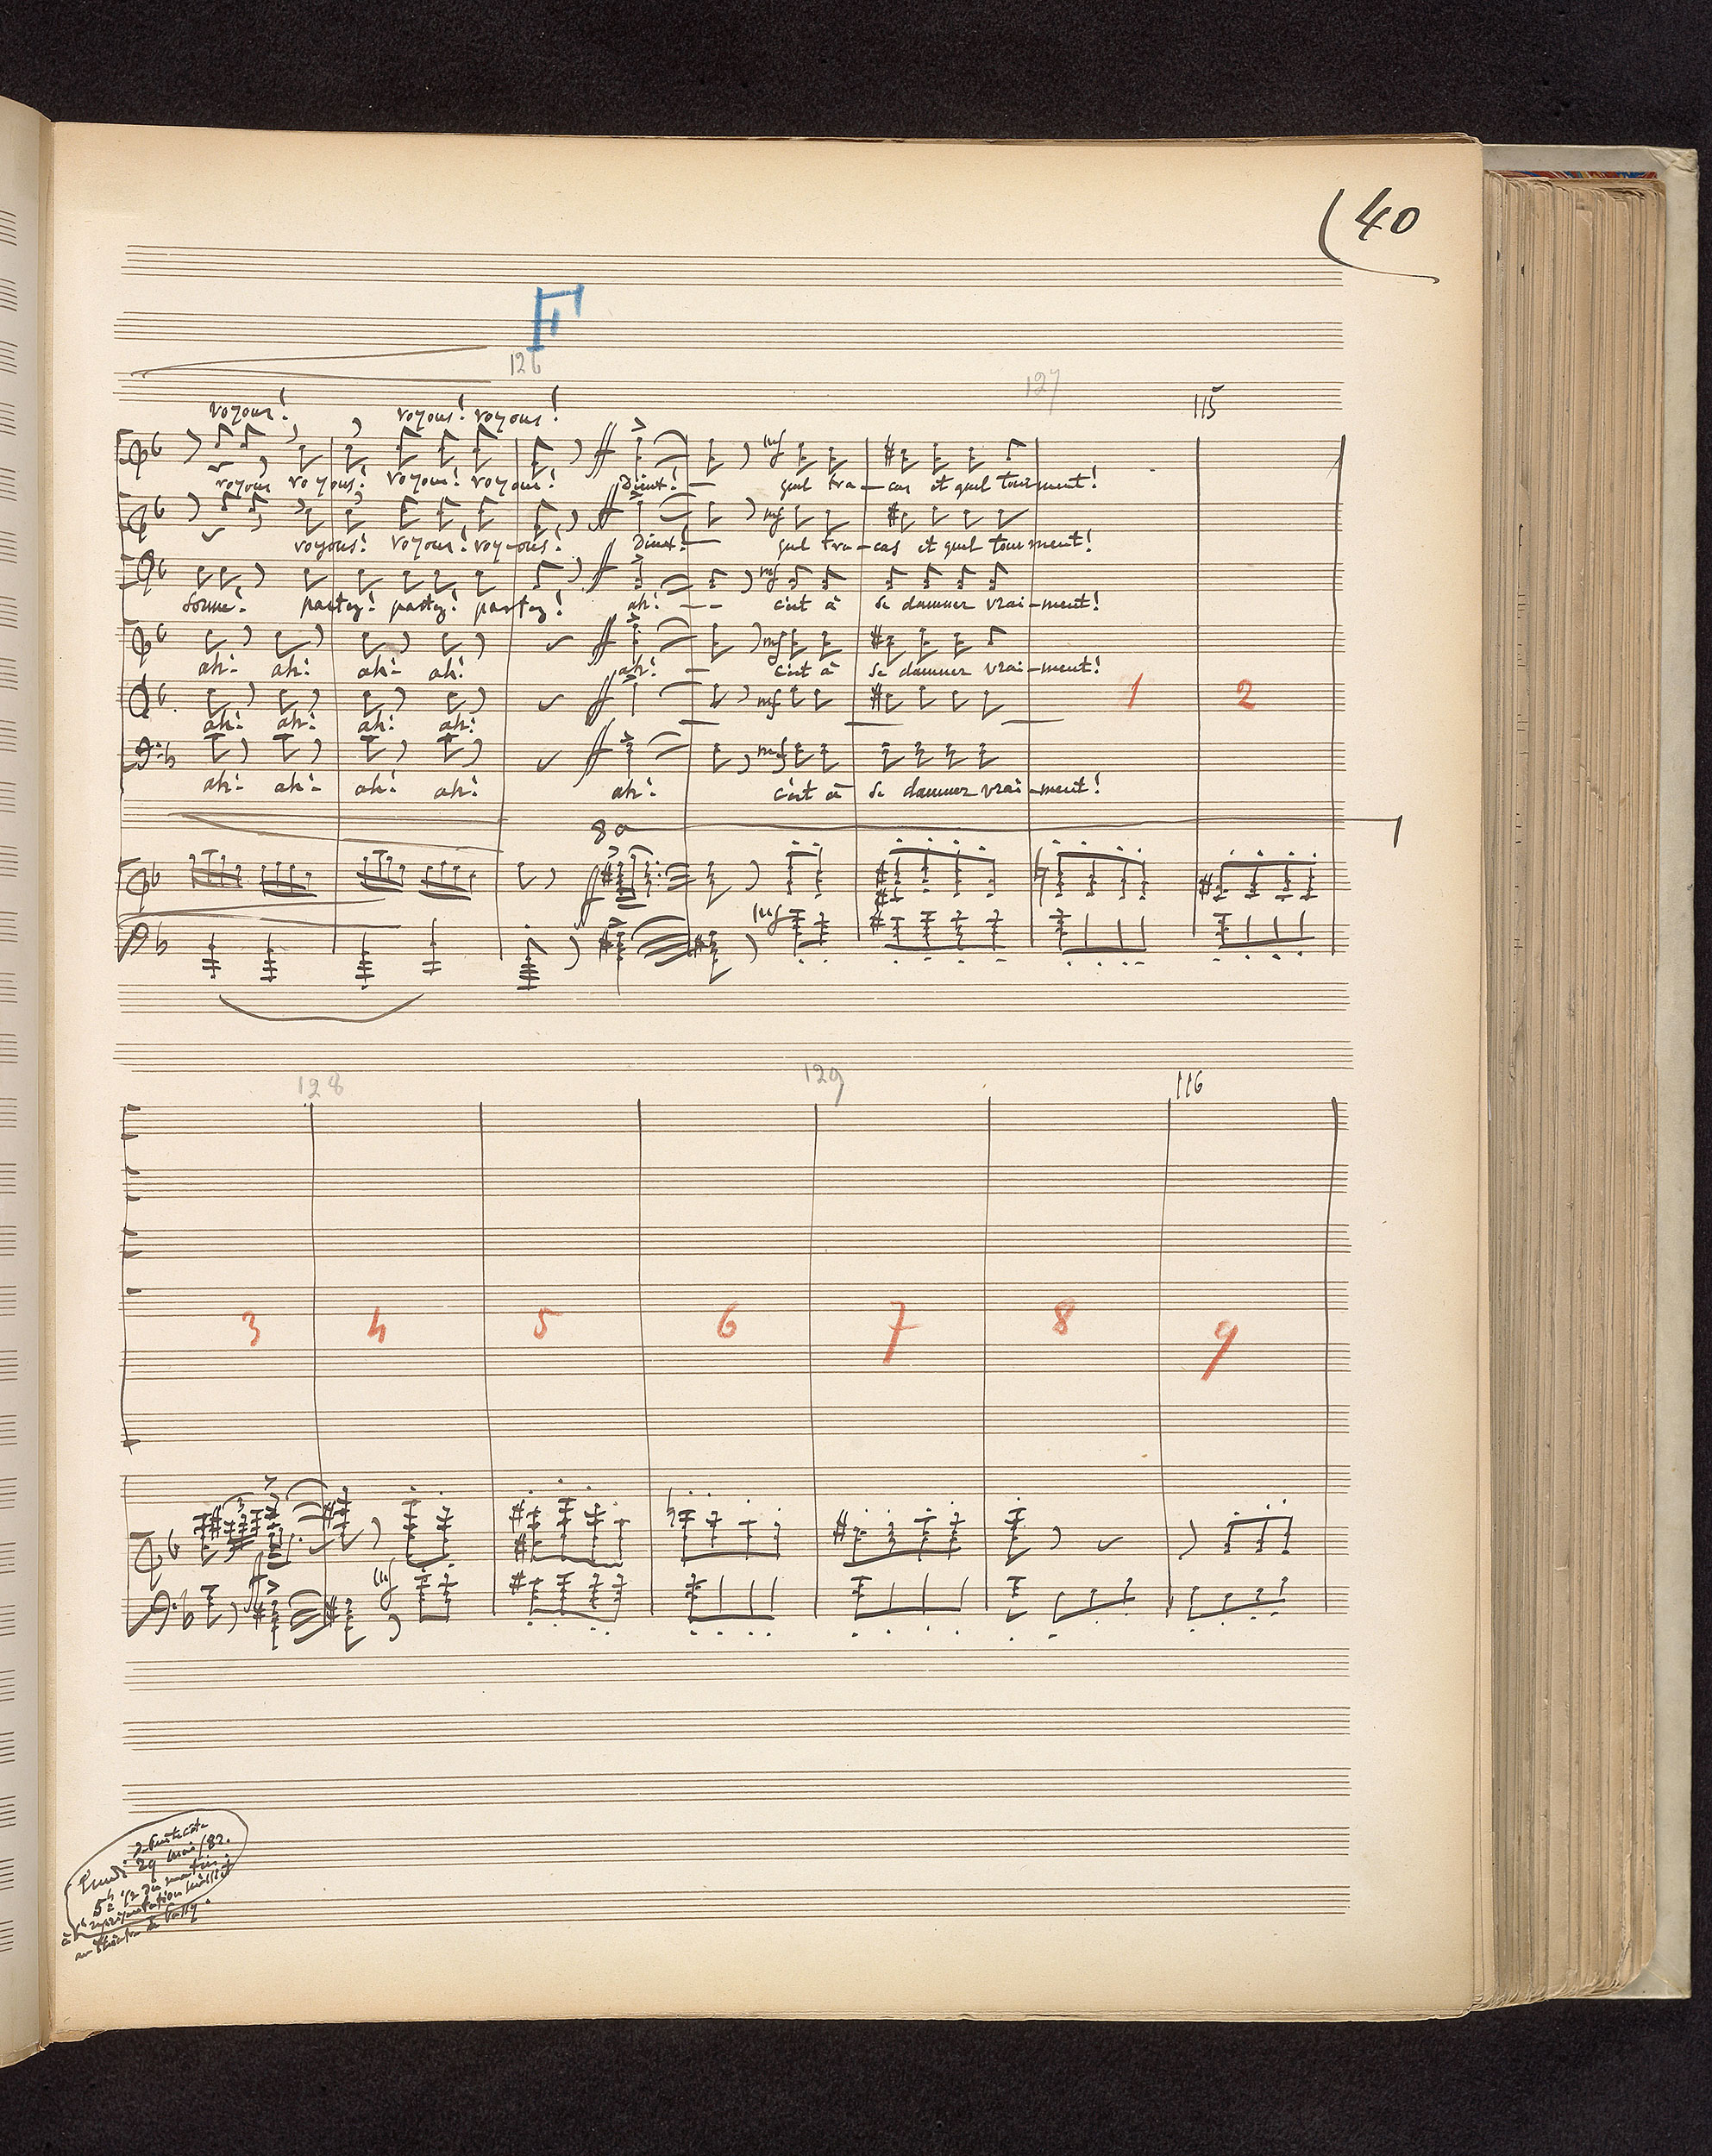 40
F
126
127
115
voyons! voyons! voyons!
voyons voyons! voyons! voyons! Dieux! quel tra-cas et quel tourment!
voyons! voyons! voyons! Dieux! quel tra-cas et quel tourment!
sonne! partez! partez! partez! ah! c'est à se damner vrai-ment!
ah! ah! ah! ah! ah! c'est à se damner vrai-ment!
1 2
ah! ah! ah! ah!
ah! ah! ah! ah! ah! c'est à se damner vrai-ment!
8a
128
129
116
3 4 5 6 7 8 9
Pentecôte
Lundi 29 mai/82.
5h 1/2 du matin.
à représentation
au théâtre de